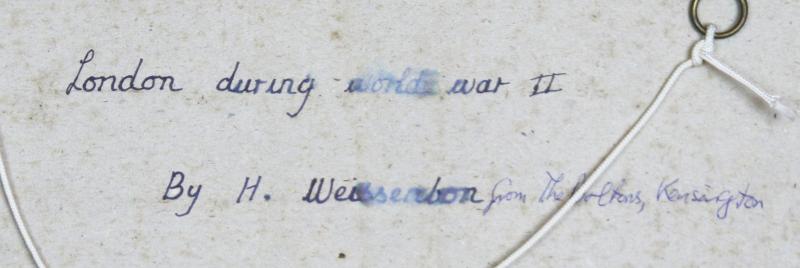 London during world war II
By H. Weissenbon from The Boltons, Kensington